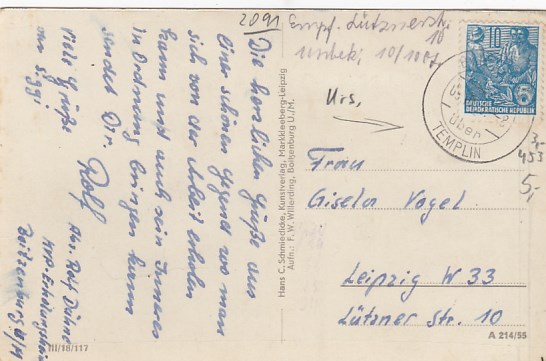 2091
Empf. Lütznerstr.
10
unbek. 10/10 57
Die herzlichen Grüße aus
einer schönen Gegend wo man
sich von der Arbeit erholen
kann und auch sein Inneres
in Ordnung bringen kann
sendet Dir
Rolf
viele Grüße
von Siggi
Abs. Rolf
Boitzenburg U/M
III/18/117
Hans C. Schmiedicke, Kunstverlag, Markkleeberg-Leipzig
Aufn.: F. W. Willerding, Boitzenburg U./M.
10
5
DEUTSCHE
DEMOKRATISCHE REPUBLIK
über
TEMPLIN
3,-
453
5,-
Frau
Gisela Vogel
Leipzig W 33
Lützner Str. 10
A 214/55